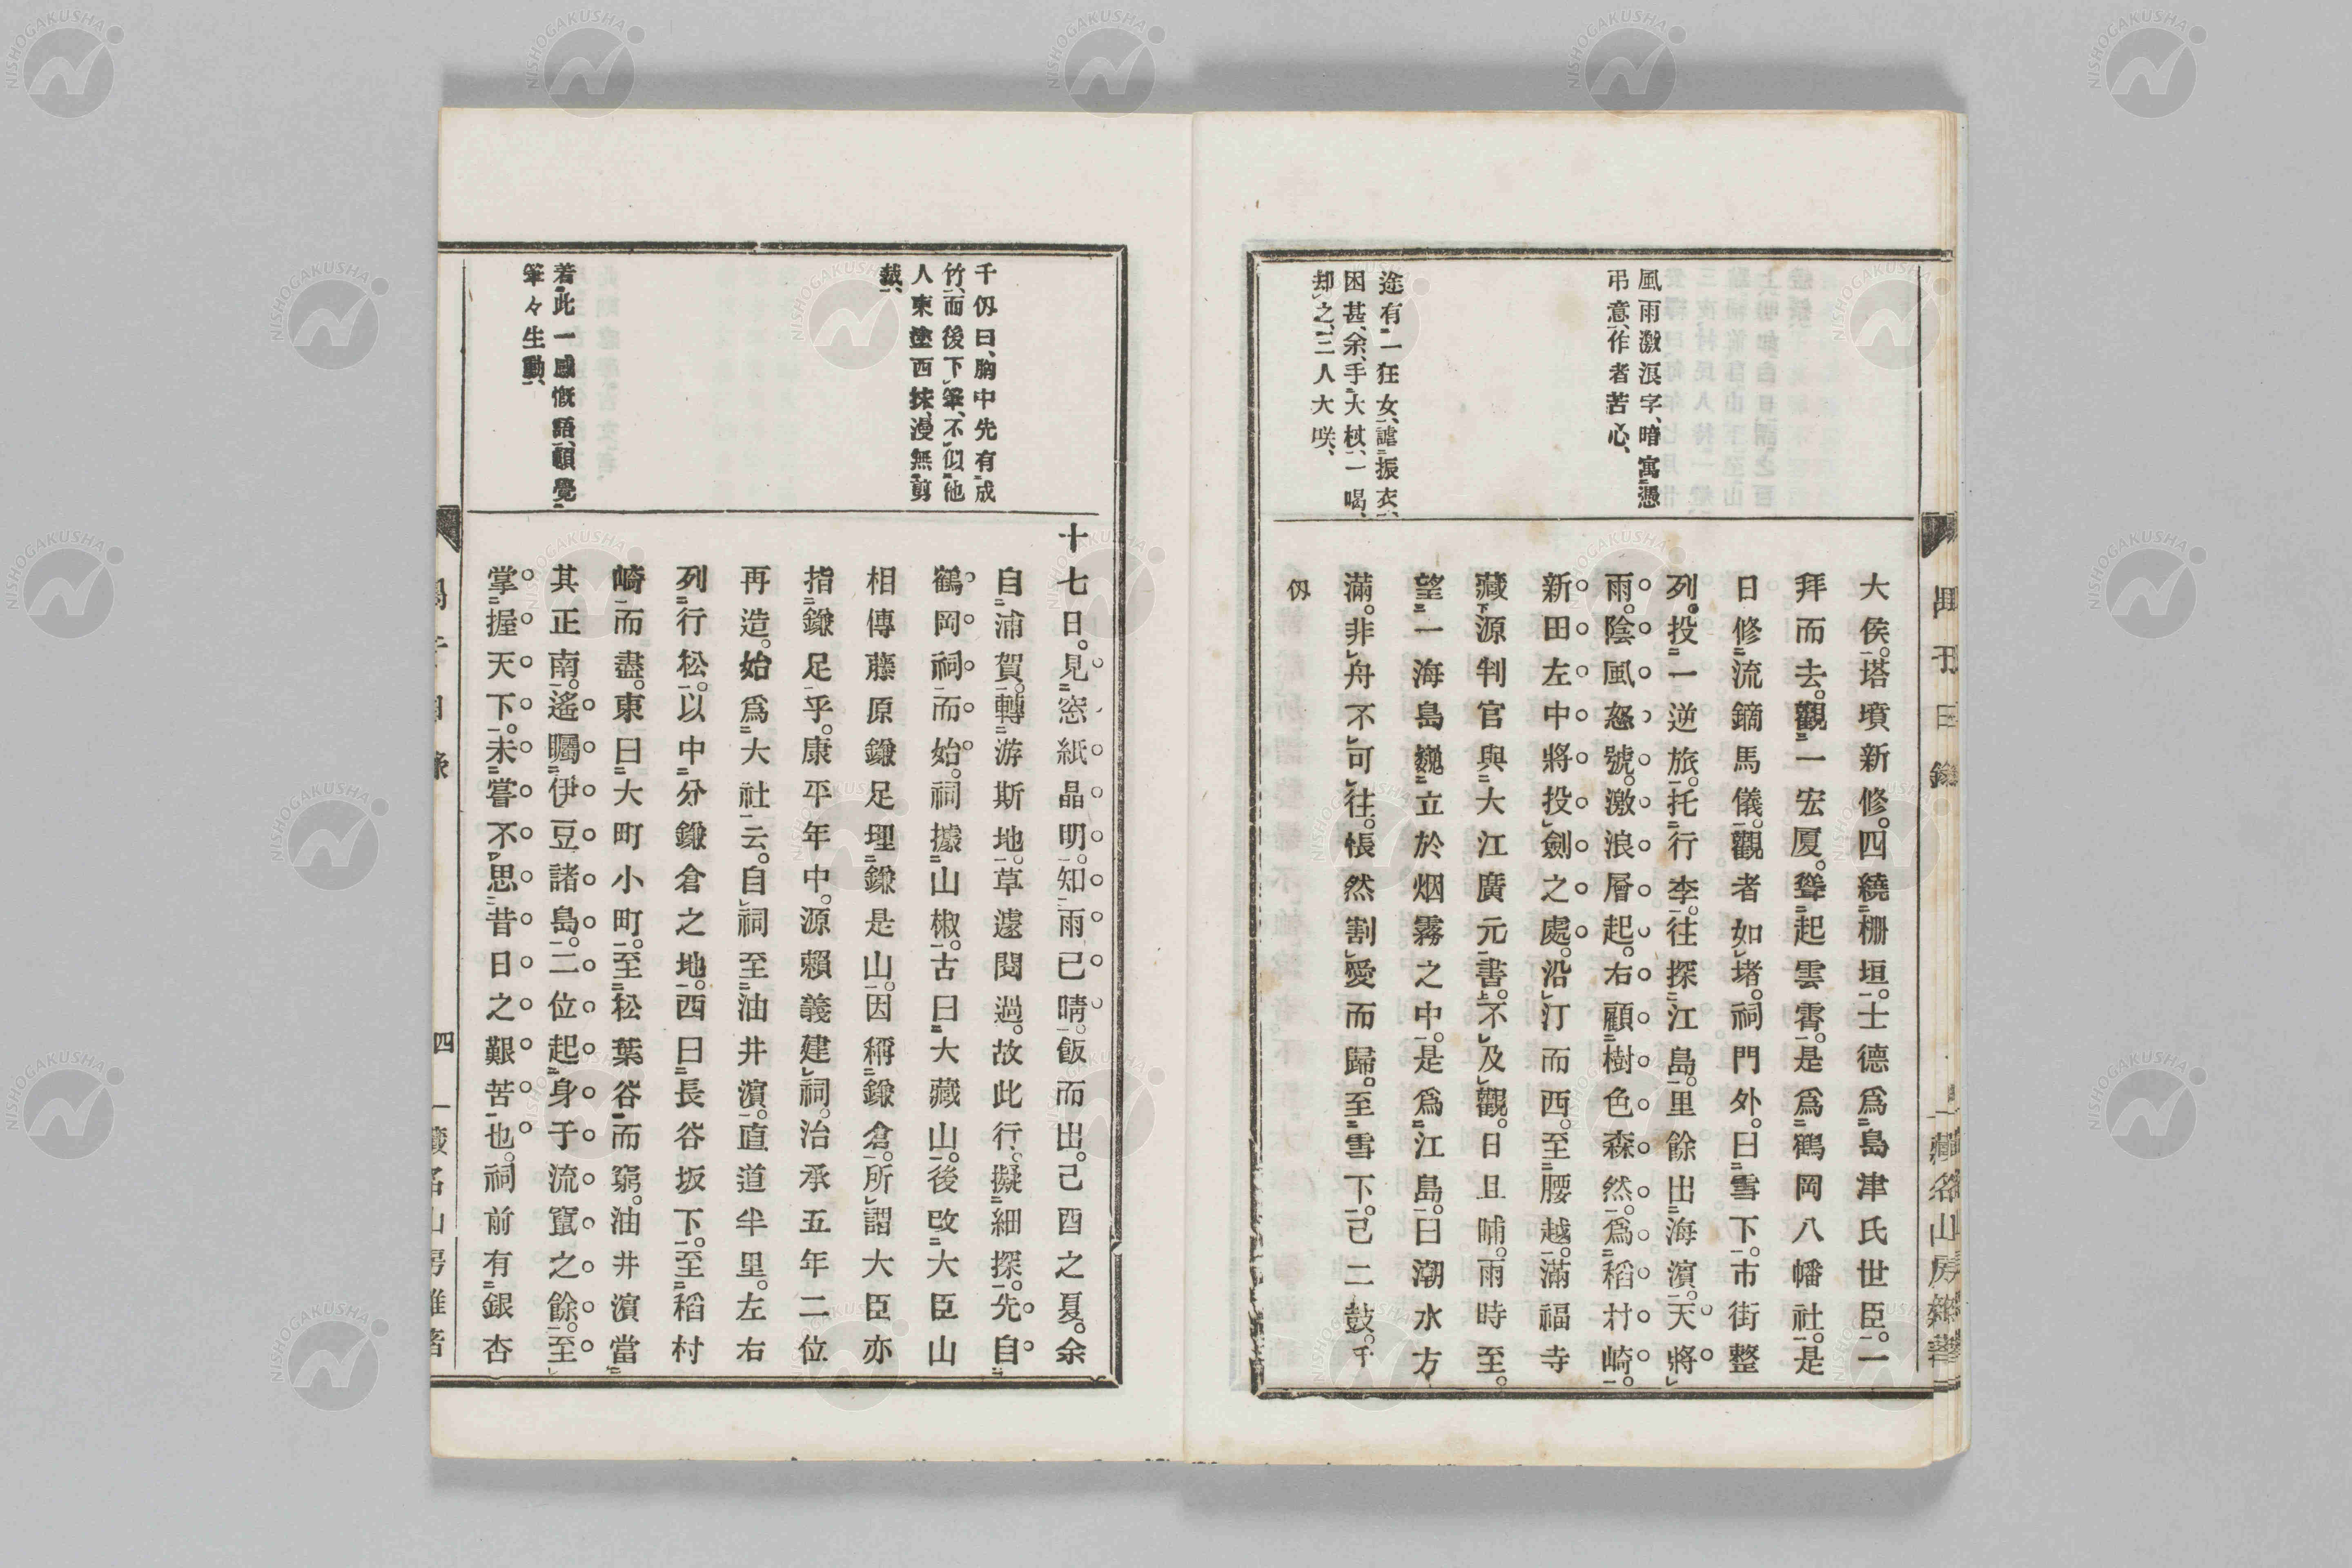 風雨激浪字、暗寓憑
弔意、作者苦心、
途有一狂女、謔振衣、
困甚、余手大杖、一喝、
却之、三人大咲、
大侯。塔墳新修。四繞柵垣。士德爲島津氏世臣。一
拜而去。觀一宏厦。聳起雲霄。是爲鶴岡八幡社。是
日修流鏑馬儀。觀者如堵。祠門外。曰雪下。市街整
列。投一逆旅。托行李。往探江島。里餘出海濱。天將
雨。陰風怒號。激浪層起。右顧樹色森然。爲稻村崎。
新田左中將投劍之處。沿汀而西。至腰越。滿福寺
藏源判官與大江廣元書。不及觀。日且晡。雨時至。
望一海島巍立於烟霧之中。是爲江島。曰潮水方
滿。非舟不可往。悵然割愛而歸。至雪下。已二鼓。千
仭
一藏名山房雜著
千仭曰、胸中先有成
竹、而後下筆、不似他
人東塗西抹、漫無剪
裁、
若此一感慨語、頓覺
筆々生動、
十七日。見窓紙晶明。知雨已晴。飯而出。己酉之夏。余
自浦賀。轉游斯地。草遽閱過。故此行。擬細探。先自
鶴岡祠而始。祠據山椒。古曰大藏山。後改大臣山
相傳藤原鎌足埋鎌是山。因稱鎌倉。所謂大臣亦
指鎌足乎。康平年中。源賴義建祠。治承五年二位
再造。始爲大社云。自祠至油井濱。直道半里。左右
列行松。以中分鎌倉之地。西曰長谷坂下。至稻村
崎而盡。東曰大町小町。至松葉谷而窮。油井濱當
其正南。遙矚伊豆諸島。二位起身于流竄之餘。至
掌握天下。未嘗不思昔日之艱苦也。祠前有銀杏
四